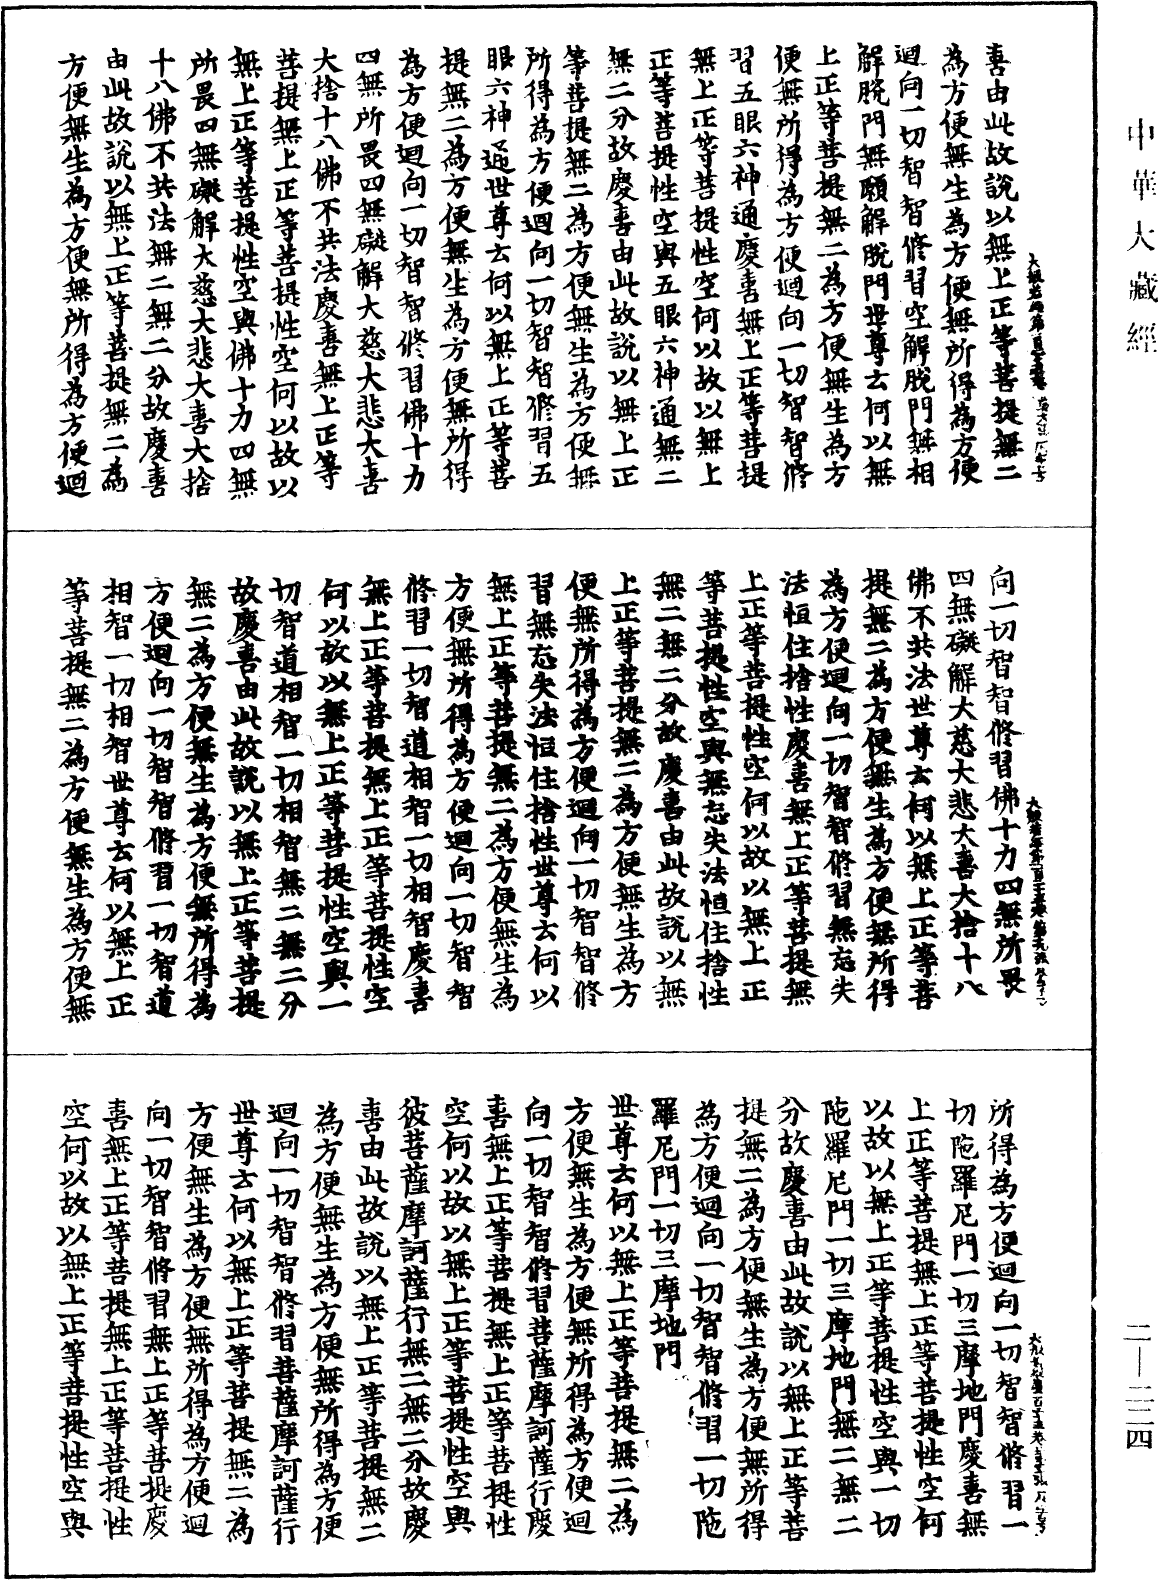 中華大藏經
二—二二四
喜由此故說以無上正等菩提無二
為方便無生為方便無所得為方便
迴向一切智智修習空解脫門無相
解脫門無願解脫門世尊云何以無
上正等菩提無二為方便無生為方
便無所得為方便迴向一切智智修
習五眼六神通慶喜無上正等菩提
無上正等菩提性空何以故以無上
正等菩提性空與五眼六神通無二
無二分故慶喜由此故說以無上正
等菩提無二為方便無生為方便無
所得為方便迴向一切智智修習五
眼六神通世尊云何以無上正等菩
提無二為方便無生為方便無所得
為方便迴向一切智智修習佛十力
四無所畏四無礙解大慈大悲大喜
大捨十八佛不共法慶喜無上正等
菩提無上正等菩提性空何以故以
無上正等菩提性空與佛十力四無
所畏四無礙解大慈大悲大喜大捨
十八佛不共法無二無二分故慶喜
由此故說以無上正等菩提無二為
方便無生為方便無所得為方便迴
向一切智智修習佛十力四無所畏
四無礙解大慈大悲大喜大捨十八
佛不共法世尊云何以無上正等菩
提無二為方便無生為方便無所得
為方便迴向一切智智修習無忘失
法恒住捨性慶喜無上正等菩提無
上正等菩提性空何以故以無上正
等菩提性空與無忘失法恒住捨性
無二無二分故慶喜由此故說以無
上正等菩提無二為方便無生為方
便無所得為方便迴向一切智智修
習無忘失法恒住捨性世尊云何以
無上正等菩提無二為方便無生為
方便無所得為方便迴向一切智智
修習一切智道相智一切相智慶喜
無上正等菩提無上正等菩提性空
何以故以無上正等菩提性空與一
切智道相智一切相智無二無二分
故慶喜由此故說以無上正等菩提
無二為方便無生為方便無所得為
方便迴向一切智智修習一切智道
相智一切相智世尊云何以無上正
等菩提無二為方便無生為方便無
所得為方便迴向一切智智修習一
切陁羅尼門一切三摩地門慶喜無
上正等菩提無上正等菩提性空何
以故以無上正等菩提性空與一切
陁羅尼門一切三摩地門無二無二
分故慶喜由此故說以無上正等菩
提無二為方便無生為方便無所得
為方便迴向一切智智修習一切陁
羅尼門一切三摩地門
世尊云何以無上正等菩提無二為
方便無生為方便無所得為方便迴
向一切智智修習菩薩摩訶薩行慶
喜無上正等菩提無上正等菩提性
空何以故以無上正等菩提性空與
彼菩薩摩訶薩行無二無二分故慶
喜由此故說以無上正等菩提無二
為方便無生為方便無所得為方便
迴向一切智智修習菩薩摩訶薩行
世尊云何以無上正等菩提無二為
方便無生為方便無所得為方便迴
向一切智智修習無上正等菩提慶
喜無上正等菩提無上正等菩提性
空何以故以無上正等菩提性空與